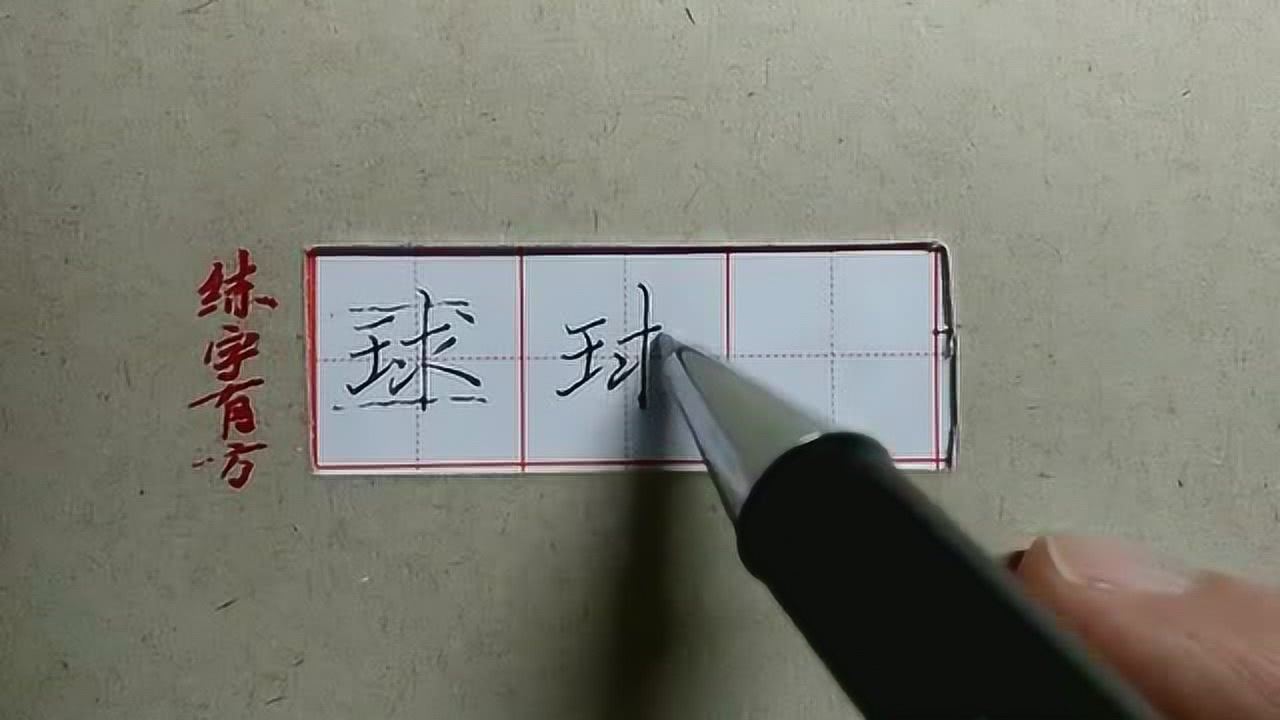 练字有方
球